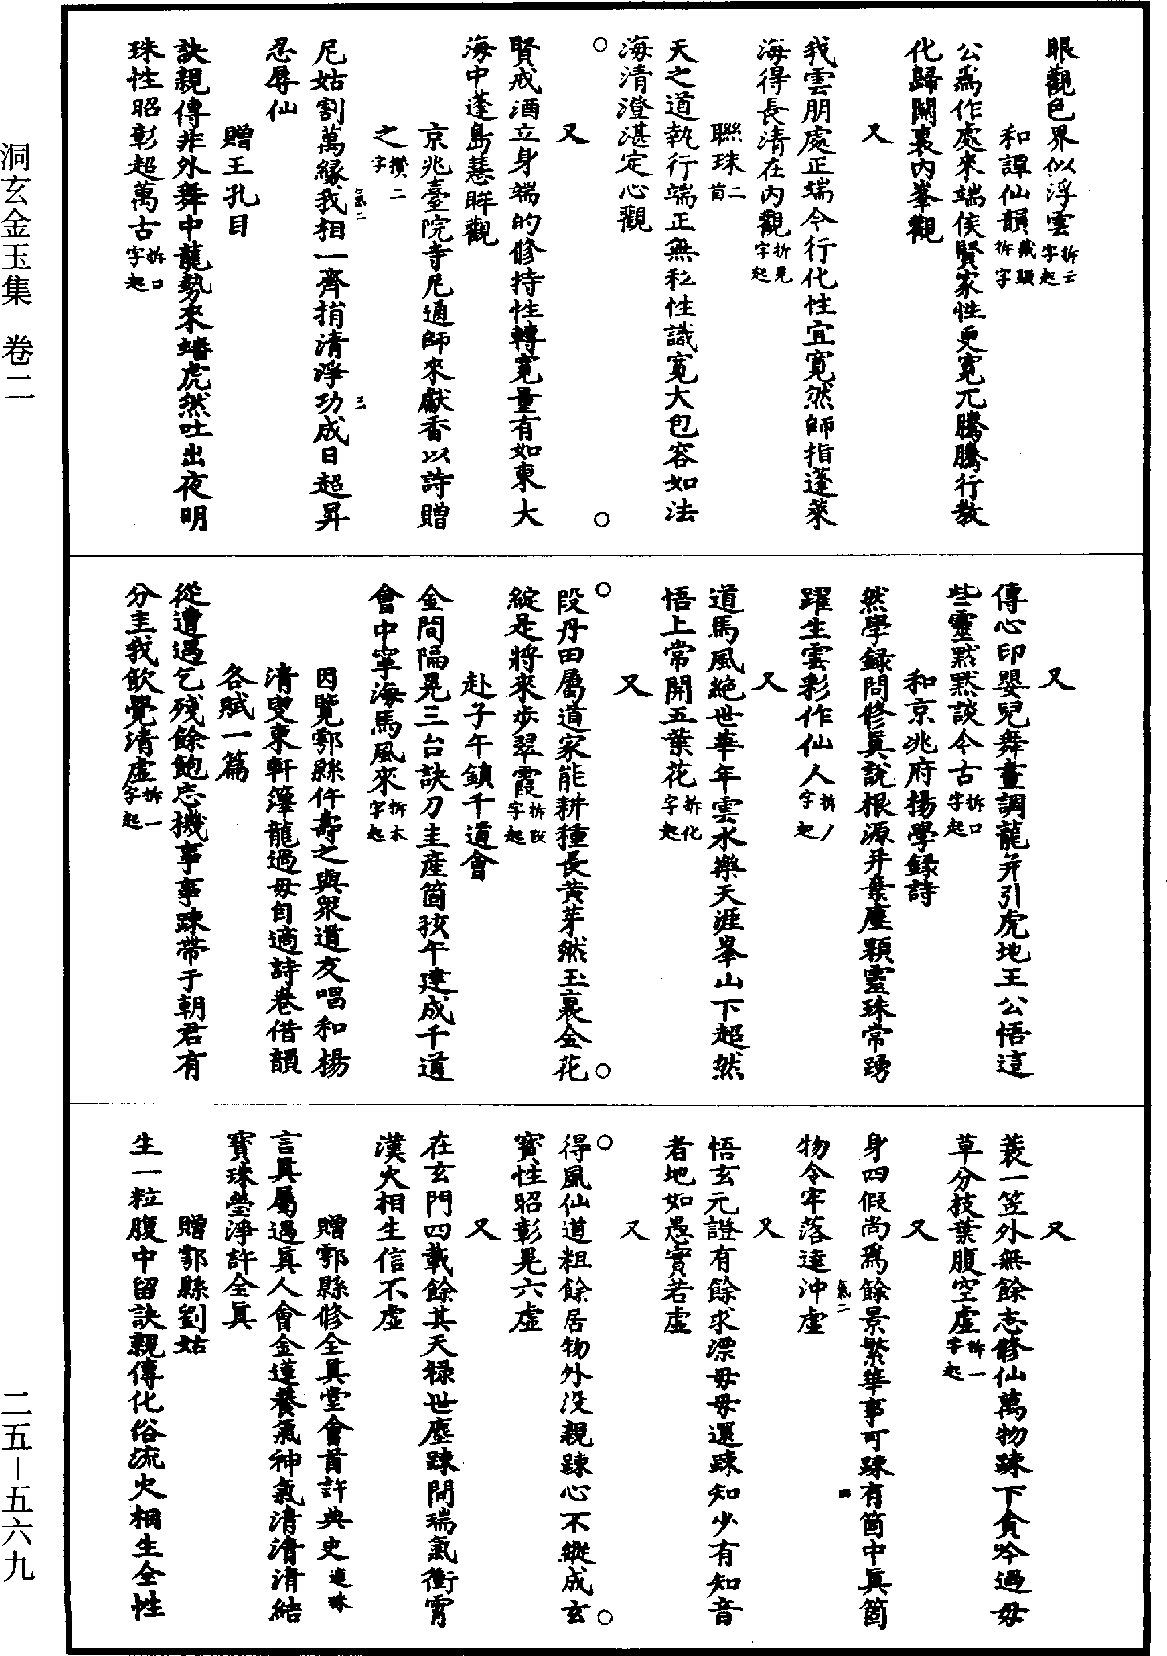 眼觀色界似浮雲拆云字起
和譚仙韻藏頭拆字
公爲作處來端侯賢家性更寬兀騰騰行教
化歸關裏內峯觀
又
我雲朋處正端令行化性宜寬然師指蓬萊
海得長清在內觀拆見字起
聯珠二首
天之道執行端正無私性識寬大包容如法
海清澄湛定心觀
又
賢戒酒立身端的修持性轉寬量有如東大
海中蓬島慧眸觀
京兆臺院寺尼通師來獻香以詩贈
之攢二字
尼姑割萬緣我相一齊捐清淨功成日超昇
忍辱仙
贈王孔目
訣親傳非外舞中龍勢來蟠虎然吐出夜明
珠性昭彰超萬古拆口字起
又
傳心印嬰兒舞畫調龍并引虎地王公悟這
些靈默默談今古拆口字起
和京兆府楊學録詩
然學録問修眞說根源并棄塵顆靈珠常踴
躍生雲彩作仙人拆丿字起
又
道馬風絶世華年雲水樂天涯峯山下超然
悟上常開五葉花拆化字起
又
段丹田屬道家能耕種長黃芽然玉裏金花
綻是將來步翠霞拆段字起
赴子午鎮千道會
金間隔晃三台訣刀圭産箇孩午建成千道
會中寧海馬風來拆木字起
因覽鄠縣仵壽之與眾道友唱和楊
清叟東軒籜龍過毋自適詩卷借韻
各賦一篇
從遭遇乞殘餘飽志機事事踈帶于朝君有
分主我飲覺清虛拆一字起
又
蓑一笠外無餘志修仙萬物踈下貪吟過毋
草分技葉腹空虛拆一字起
又
身四假尚爲餘景繁華事可踈有箇中眞箇
物令牢落達沖虛
又
悟玄元證有餘求漂毋毋還踈知少有知音
者地如愚實若虛
又
得風仙道粗餘居物外没親踈心不縱成玄
寶性昭彰晃六虛
又
在玄門四載餘其天禄世塵踈間瑞氣衝霄
漢火相生信不虛
贈鄠縣修全眞堂會首許典史連珠
言眞屬遇眞人會金蓮養氣神氣清清清結
寶珠瑩淨許全眞
贈鄠縣劉姑
生一粒腹中留訣親傳化俗流火相生全性
洞玄金玉集 卷二
二五－五六九